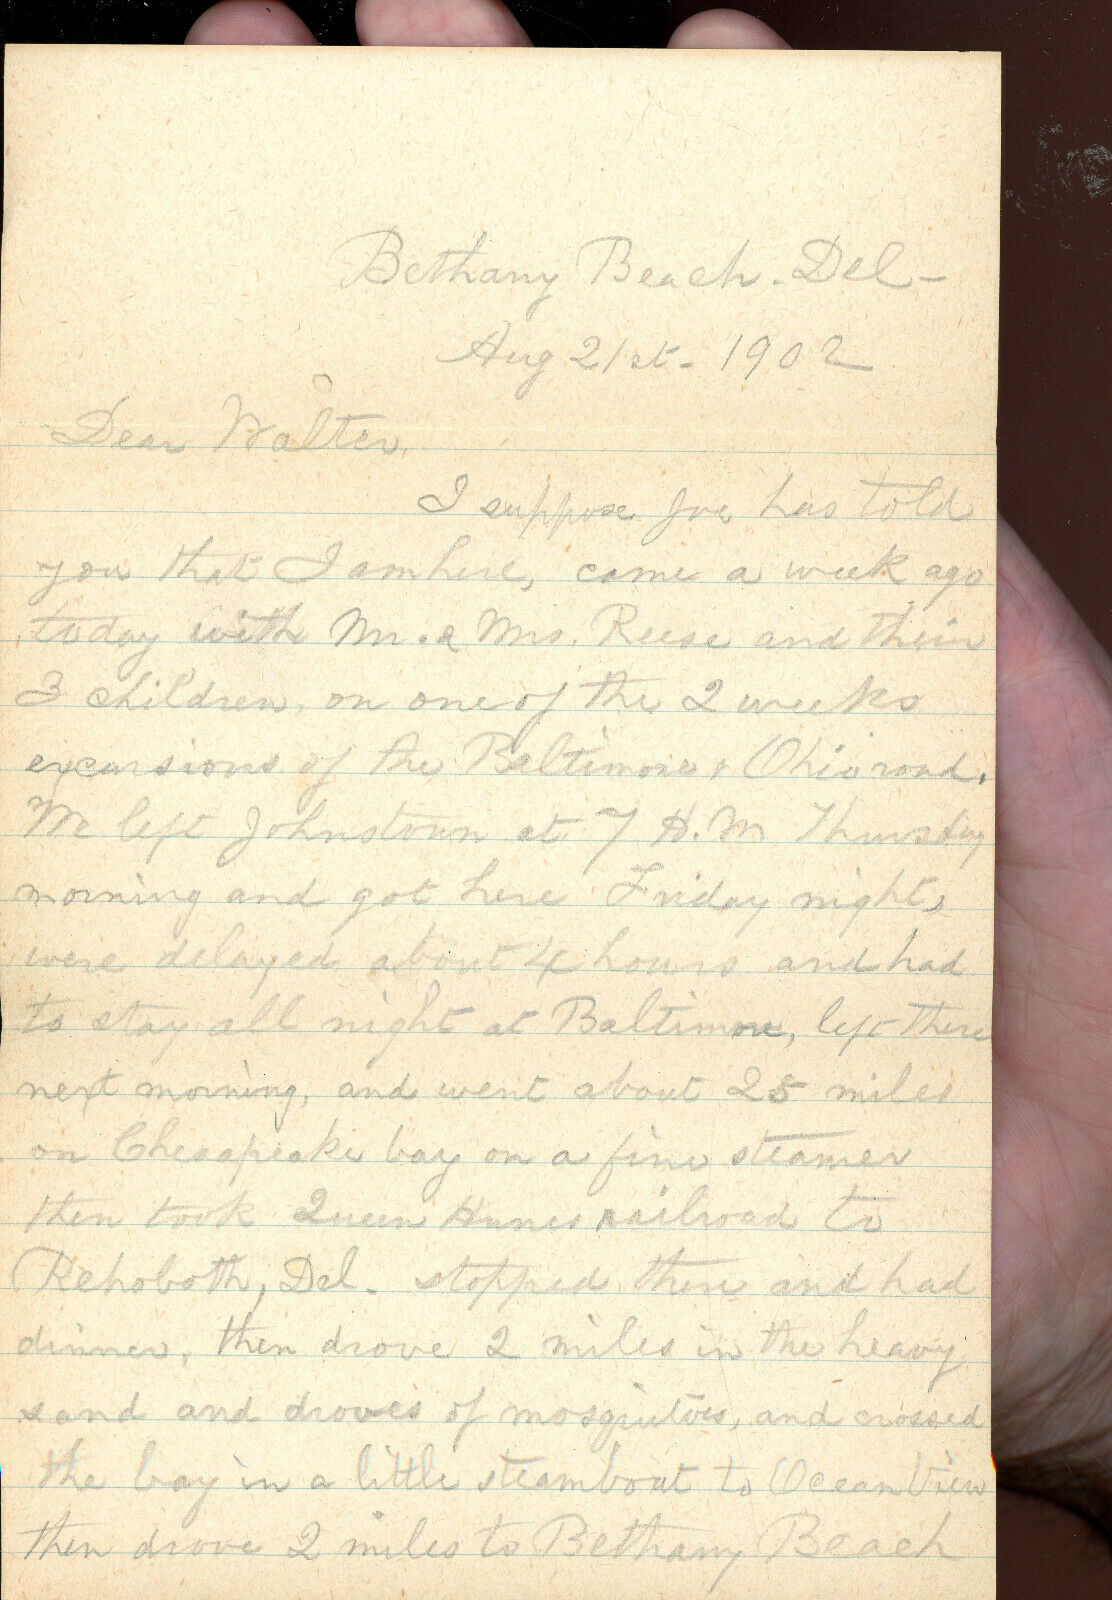 Bethany Beach. Del-
Aug 21st- 1902
Dear Walter,
I suppose Joe has told
you that I am here, came a week ago
today with Mr. & Mrs. Reese and their
3 children, on one of the 2 weeks
excursions of the Baltimore & Ohio road.
We left Johnstown at 7 A.M Thursday
morning and got here Friday night,
were delayed about 4 hours and had
to stay all night at Baltimore, left there
next morning, and went about 25 miles
on Chesapeake bay on a fine steamer
then took Queen Annes railroad to
Rehoboth, Del. stopped there and had
dinner, then drove 2 miles in the heavy
sand and droves of mosquitoes, and crossed
the bay in a little steamboat to Ocean View
then drove 2 miles to Bethany Beach